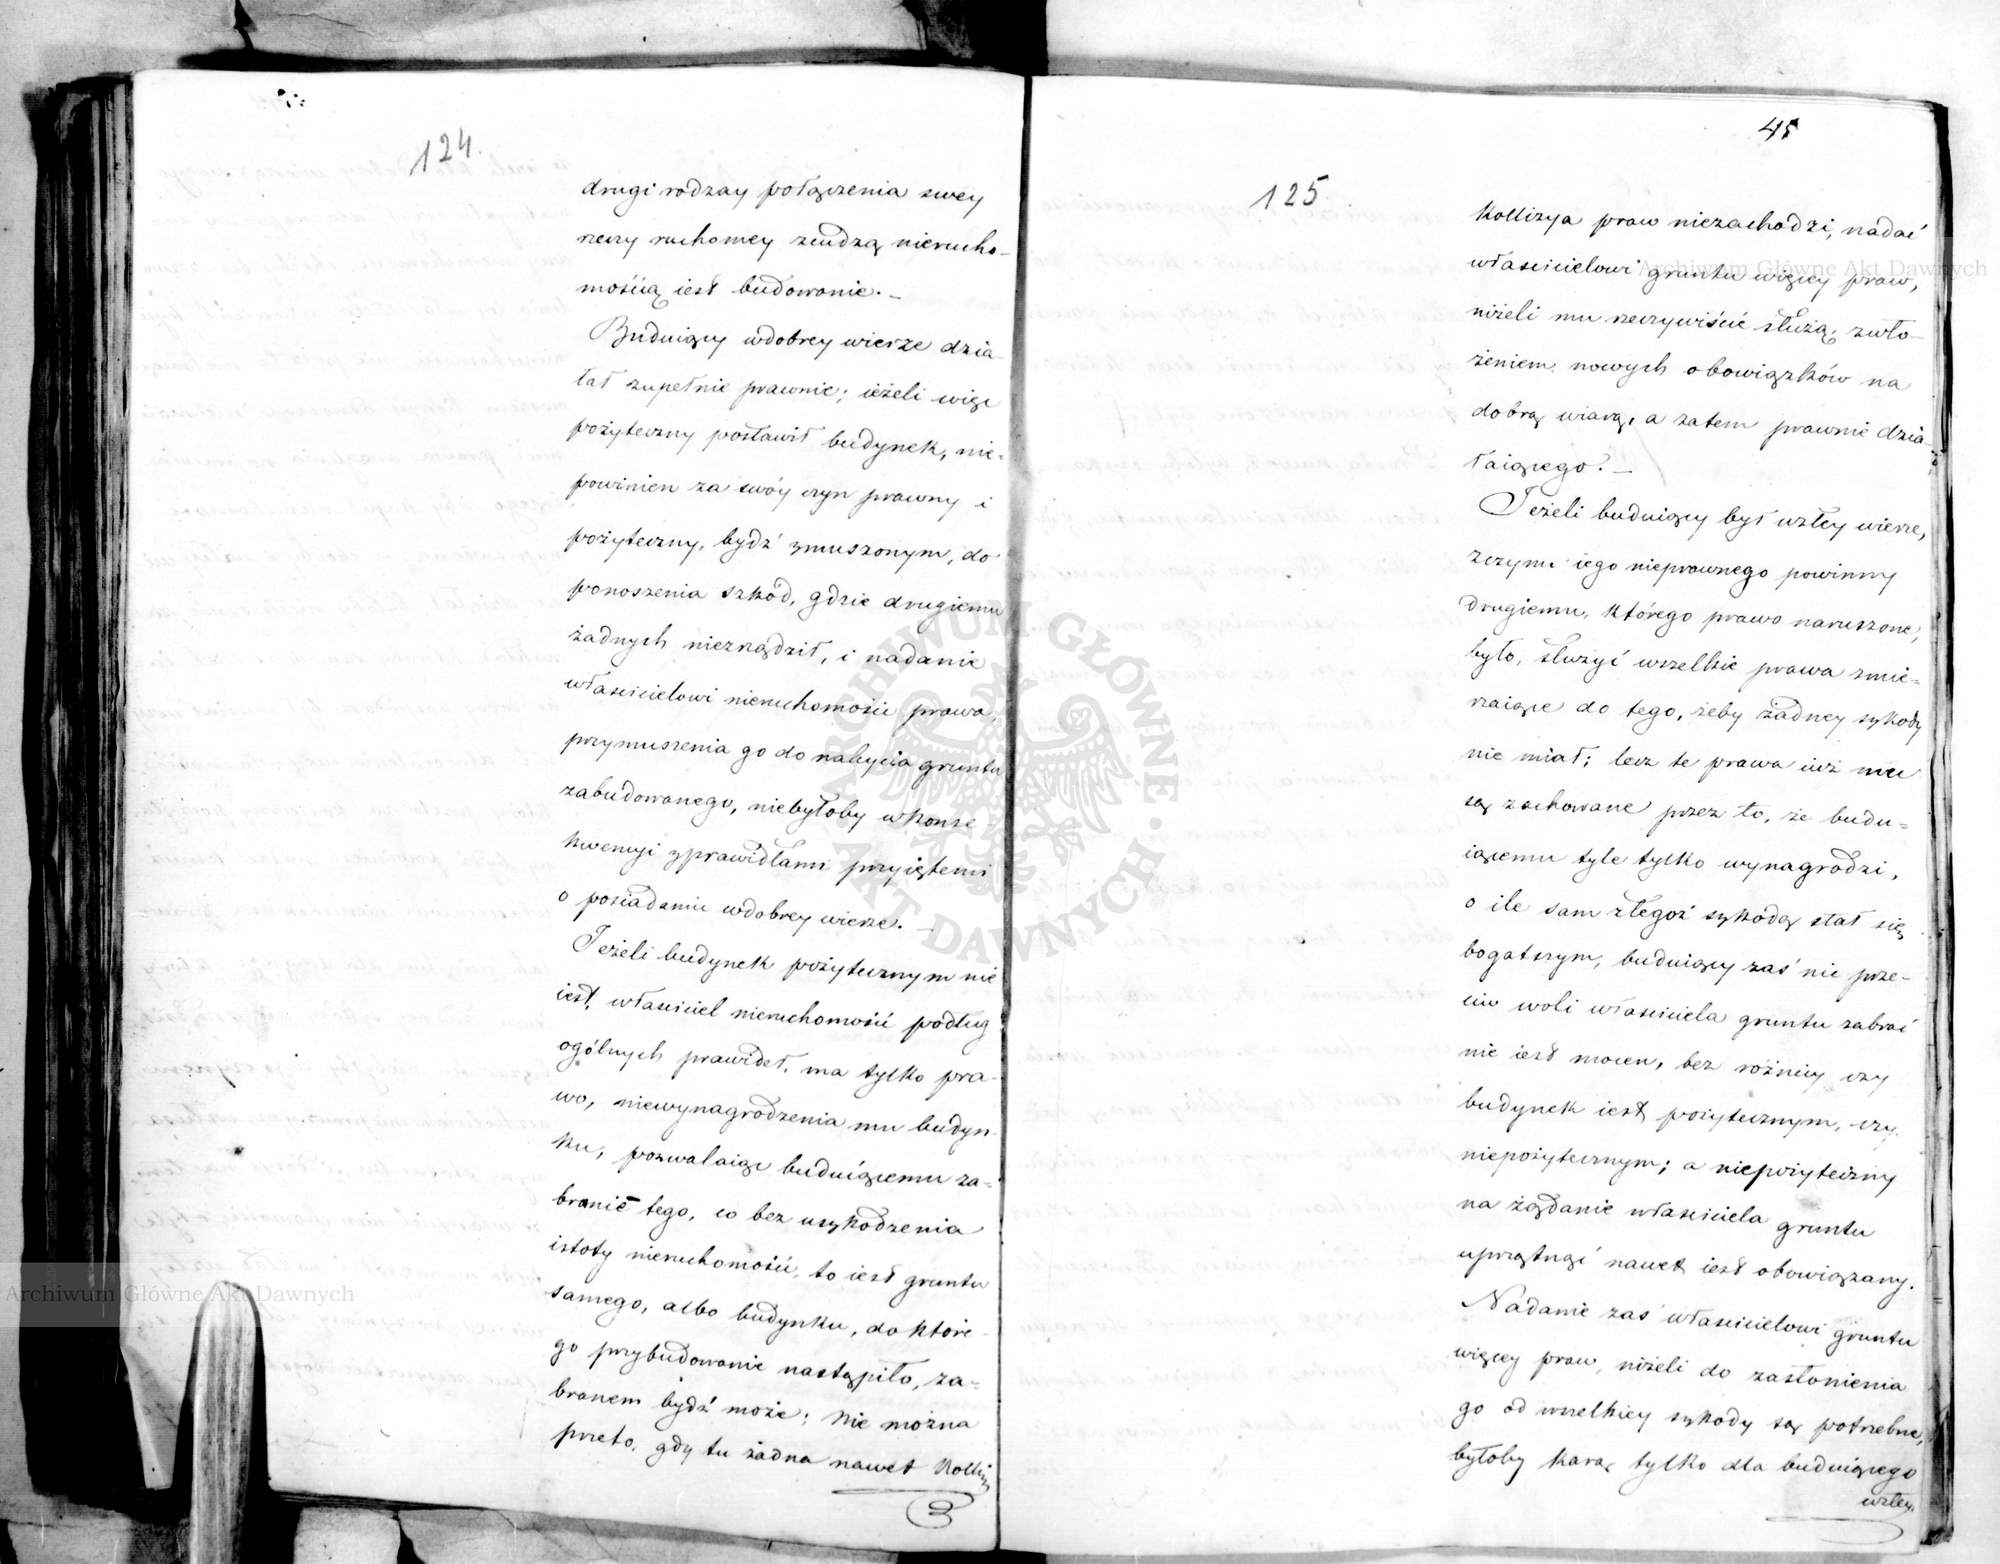 124.
drugi rodzay połączenia swey
rzeczy ruchomey zcudzą nierucho-
mością iest budowanie. —
Buduiący wdobrey wierze dzia-
łał zupełnie prawnie; ieżeli więc
pożyteczny postawił budynek, nie-
powinien za swóy czyn prawny i
pożyteczny, bydź zmuszonym, do
ponoszenia szkód, gdzie drugiemu
żadnych niezrządził, i nadanie
właścicielowi nieruchomości prawa,
przymuszenia go do nabycia gruntu
zabudowanego, niebyłoby wkonse-
kwencyi zprawidłami przyiętemi
o posiadaniu wdobrey wierze. —
Jeżeli budynek pożytecznym nie
iest, właściciel nieruchomości podług
ogólnych prawideł, ma tylko pra-
wo, niewynagrodzenia mu budyn-
ku, pozwalaiąc buduiącemu za-
branie tego, co bez uszkodzenia
istoty nieruchomości, to iest gruntu
samego, albo budynku, do które-
go przybudowanie nastąpiło, za-
branem bydź może; Nie można
przeto, gdy tu żadna nawet Kollizya
45
125
Kollizya praw niezachodzi, nadać
właścicielowi gruntu więcey praw,
niżeli mu rzeczywiście służą, zwło-
żeniem nowych obowiązków na
dobrą wiarą, a zatem prawnie dzia-
łaiącego? —
Jeżeli buduiący był wzłey wierze,
zczynu iego nieprawnego powinny
drugiemu, którego prawo naruszone,
było, służyć wszelkie prawa zmie-
rzaiące do tego, żeby żadney szkody
nie miał; lecz te prawa iuż mu
są zachowane przez to, że budu-
iącemu tyle tylko wynagrodzi,
o ile sam ztegoż szkodą stał się
bogatszym, buduiący zaś nic prze-
ciw woli właściciela gruntu zabrać
nie iest mocen, bez różnicy czy
budynek iest pożytecznym, czy
niepożytecznym; a niepożyteczny
na żądanie właściciela gruntu
uprzątnąć nawet iest obowiązany.
Nadanie zaś właścicielowi gruntu
więcey praw, niżeli do zasłonienia
go od wszelkiey szkody są potrzebne,
byłoby karą tylko dla buduiącego
wzłey.
Archiwum Główne Akt Dawnych
Archiwum Główne Akt Dawnych
ARCHIWUM GŁÓWNE AKT DAWNYCH